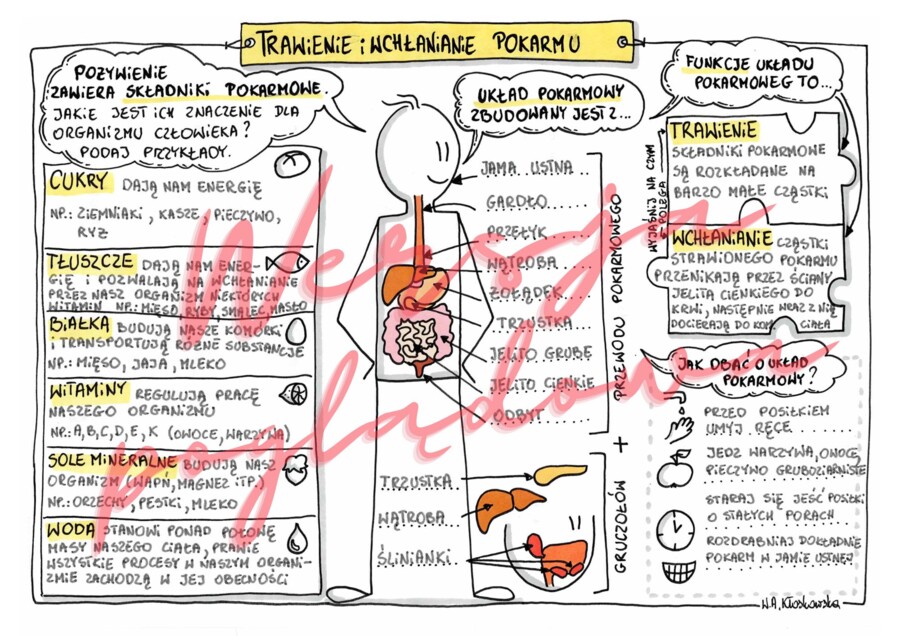 TRAWIENIE I WCHŁANIANIE POKARMU
POŻYWIENIE
ZAWIERA SKŁADNIKI POKARMOWE.
JAKIE JEST ICH ZNACZENIE DLA
ORGANIZMU CZŁOWIEKA?
PODAJ PRZYKŁADY.
CUKRY DAJĄ NAM ENERGIĘ
NP.: ZIEMNIAKI, KASZE, PIECZYWO,
RYŻ
TŁUSZCZE DAJĄ NAM ENER-
GIĘ I POZWALAJĄ NA WCHŁANIANIE
PRZEZ NASZ ORGANIZM NIEKTÓRYCH
WITAMIN NP.: MIĘSO, RYBY, SMALEC, MASŁO
BIAŁKA BUDUJĄ NASZE KOMÓRKI
I TRANSPORTUJĄ RÓŻNE SUBSTANCJE
NP.: MIĘSO, JAJA, MLEKO
WITAMINY REGULUJĄ PRACĘ
NASZEGO ORGANIZMU
NP.: A, B, C, D, E, K (OWOCE, WARZYWA)
SOLE MINERALNE BUDUJĄ NASZ
ORGANIZM (WAPŃ, MAGNEZ ITP.)
NP.: ORZECHY, PESTKI, MLEKO
WODA STANOWI PONAD POŁOWĘ
MASY NASZEGO CIAŁA, PRAWIE
WSZYSTKIE PROCESY W NASZYM ORGANI-
ZMIE ZACHODZĄ W JEJ OBECNOŚCI
UKŁAD POKARMOWY
ZBUDOWANY JEST Z...
JAMA USTNA
GARDŁO
PRZEŁYK
WĄTROBA
ŻOŁĄDEK
TRZUSTKA
JELITO GRUBE
JELITO CIENKIE
ODBYT
PRZEWODU POKARMOWEGO
+
GRUCZOŁÓW
TRZUSTKA
WĄTROBA
ŚLINIANKI
FUNKCJE UKŁADU
POKARMOWEG TO...
WYJAŚNIJ NA CZYM
POLEGA
TRAWIENIE
SKŁADNIKI POKARMOWE
SĄ ROZKŁADANE NA
BARZO MAŁE CZĄSTKI
WCHŁANIANIE CZĄSTKI
STRAWIONEGO POKARMU
PRZENIKAJĄ PRZEZ ŚCIANY
JELITA CIENKIEGO DO
KRWI, NASTĘPNIE WRAZ Z NIĄ
DOCIERAJĄ DO KOM CIAŁA
JAK DBAĆ O UKŁAD
POKARMOWY?
PRZED POSIŁKIEM
UMYJ RĘCE
JEDZ WARZYWA, OWOCE,
PIECZYWO GRUBOZIARNISTE
STARAJ SIĘ JEŚĆ POSIŁKI
O STAŁYCH PORACH
ROZDRABNIAJ DOKŁADNIE
POKARM W JAMIE USTNEJ
Wersja
poglądowa
W.A. Kłosowska